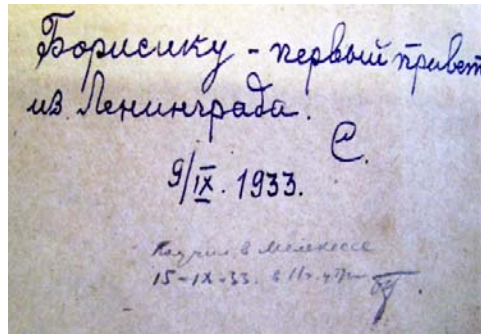 Борисику - первый привет
из Ленинграда.
С.
9/IX. 1933.
Получил в Мелекессе
15-IX-33. в 11 ч. утра